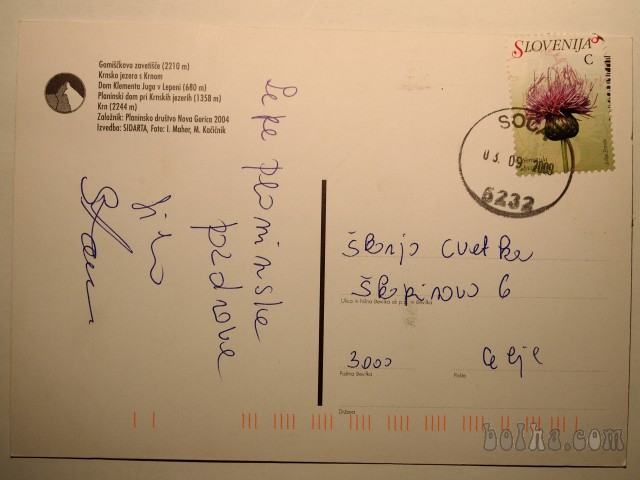 Gomiščkovo zavetišče (2210 m)
Krnsko jezero s Krnom
Dom Klementa Juga v Lepeni (680 m)
Planinski dom pri Krnskih jezerih (1358 m)
Krn (2244 m)
Založnik: Planinsko društvo Nova Gorica 2004
Izvedba: SIDARTA, Foto: I. Maher, M. Kačičnik
Lepe planinske
pozdrave
SLOVENIJA
C
SOČA
03. 09. 2009
5232
Cvetka
6
Ulica in hišna številka ali p.p. in številka
3000 Celje
Poštna številka Pošta
Država
bolha.com